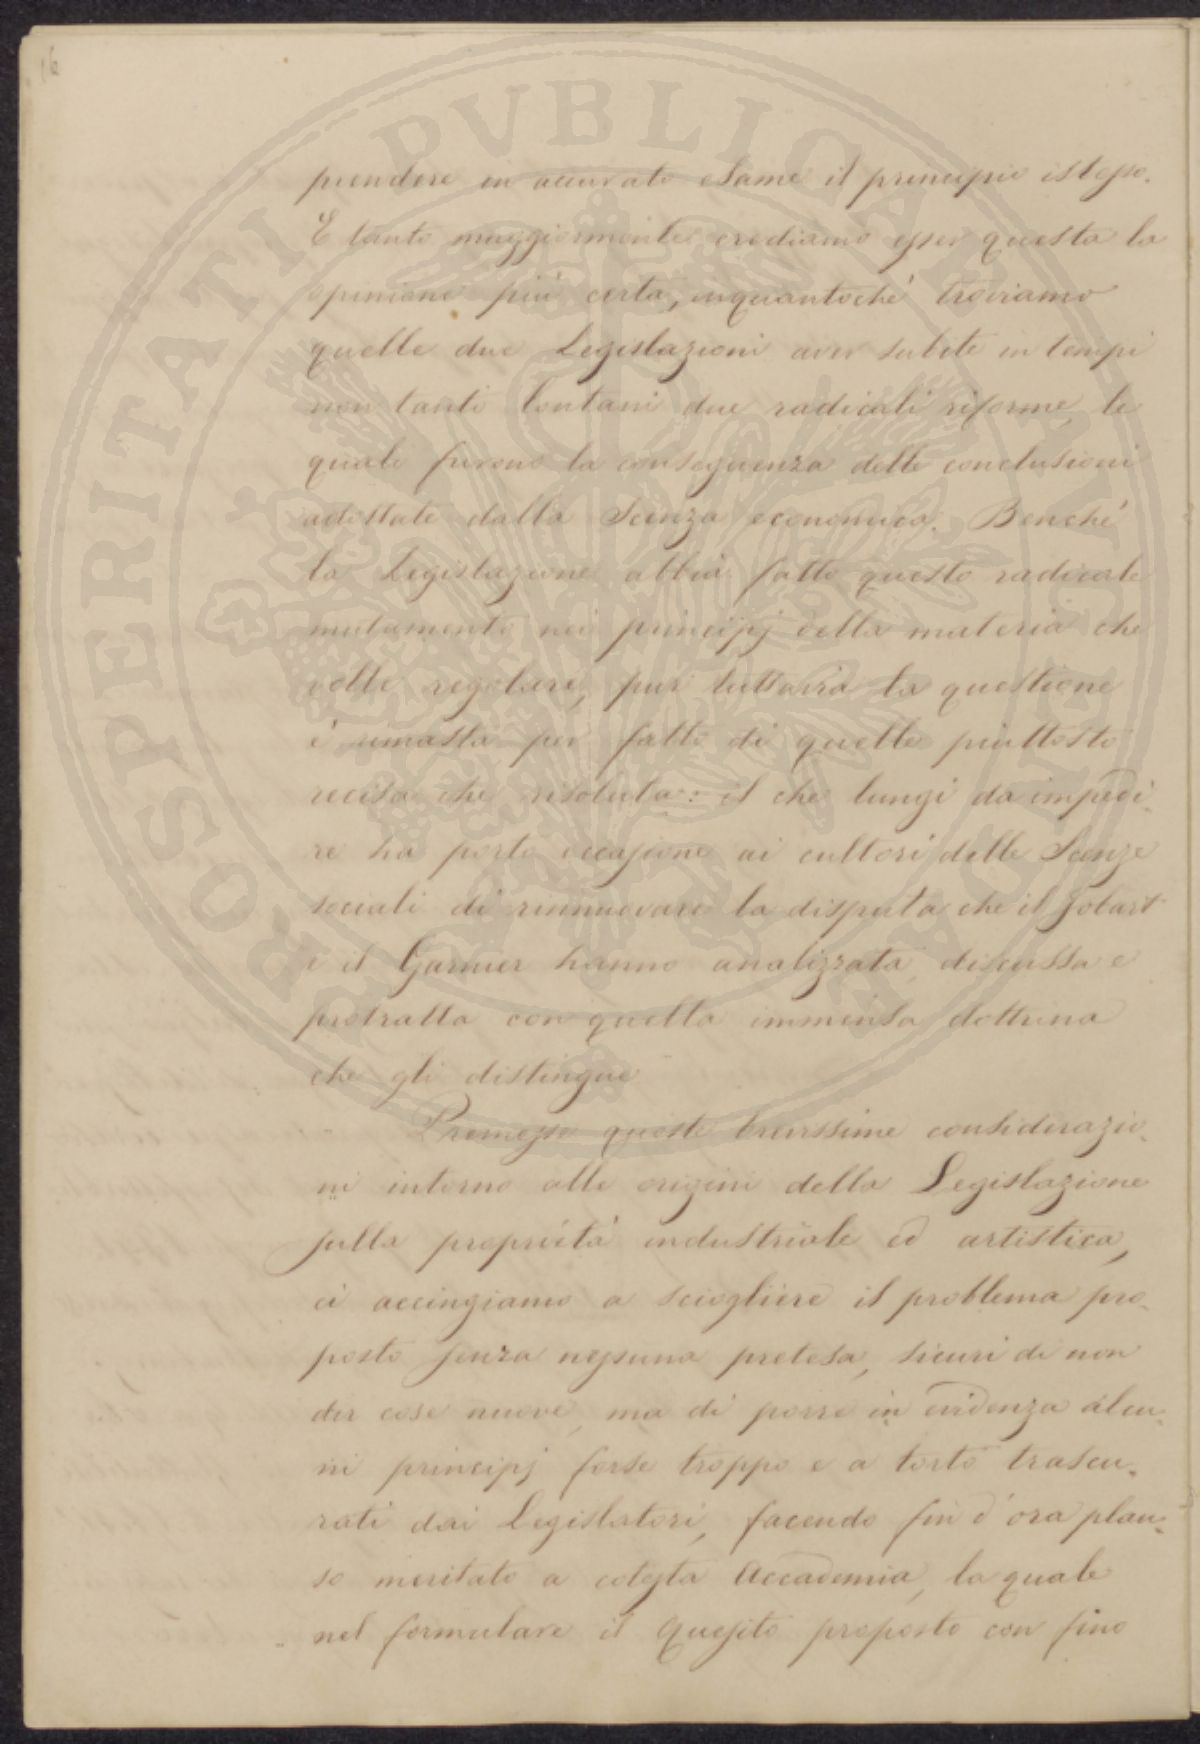 16
prendere in accurato esame il principio istesso.
E tanto maggiormente crediamo esser questa la
opinione più certa, inquantochè troviamo
quelle due Legislazioni aver subite in tempi
non tanto lontani due radicali riforme, le
quali furono la conseguenza delle conclusioni
adottate dalla Scienza economica. Benchè
la Legislazione abbia fatto questo radicale
mutamento nei principj della materia che
volle regolare, pur tuttavia la questione
è rimasta per fatto di quelle piuttosto
recisa che risoluta: il che lungi da impedi-
re ha porto occasione ai cultori delle Scienze
sociali di rinnuovare la disputa che il Jobart
e il Garnier hanno analizzata, discussa e
protratta con quella immensa dottrina
che gli distingue
Premesse queste brevissime considerazio-
ni intorno alle origini della Legislazione
sulla proprietà industriale ed artistica,
ci accingiamo a sciogliere il problema pro-
posto senza nessuna pretesa, sicuri di non
dir cose nuove, ma di porre in evidenza alcu-
ni principj forse troppo e a torto trascu-
rati dai Legislatori, facendo fin d'ora plau-
so meritato a cotesta Accademia, la quale
nel formulare il Quesito proposto con fino
PROSPERITATI PUBLICAE AUGENDAE